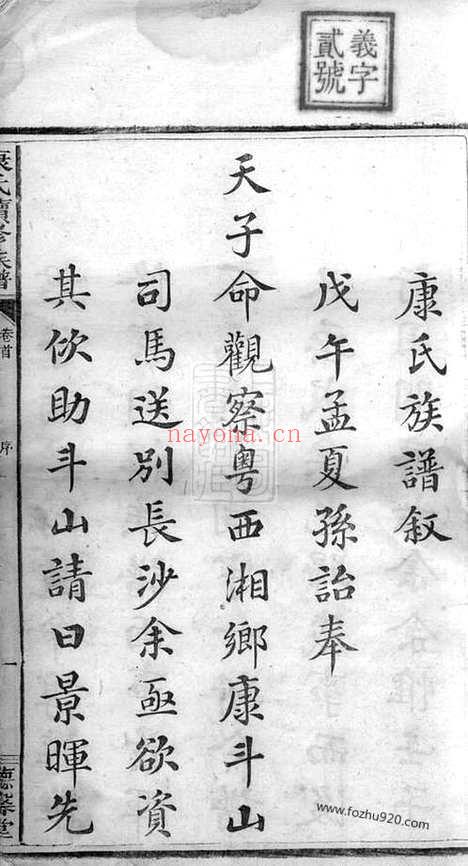 義字
貳號
康氏族譜叙
戊午孟夏孫詒奉
天子命觀察粵西湘鄉康斗山
司馬送別長沙余亟欲資
其佽助斗山請曰景暉先
康氏續修族譜
卷首
序
一
nayona.cn
www.fozhu920.com